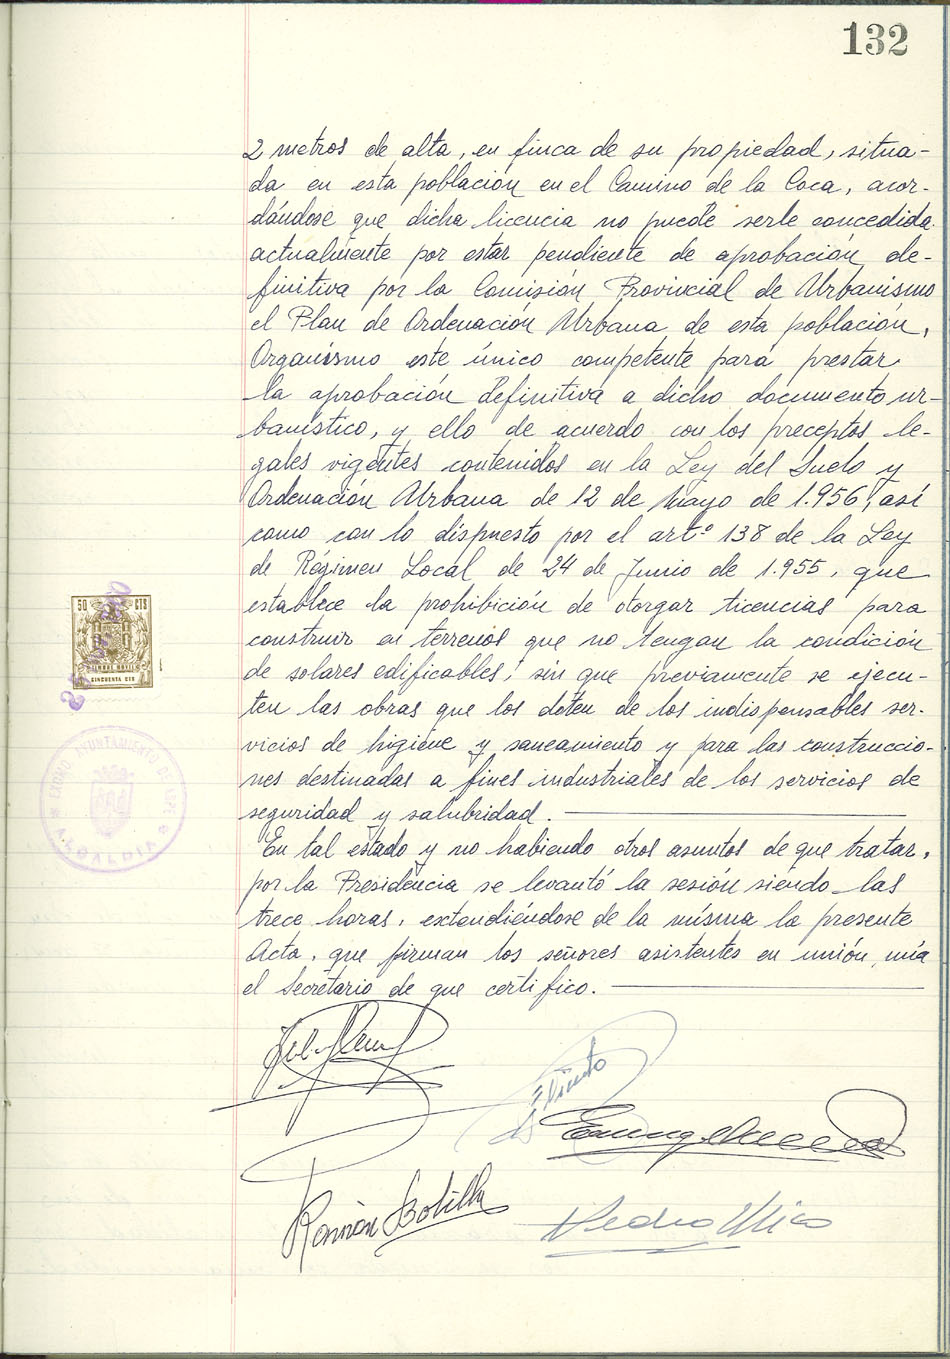 132
2 metros de alta, en finca de su propiedad, situa-
da en esta población en el Camino de la Coca, acor-
dándose que dicha licencia no puede serle concedida
actualmente por estar pendiente de aprobación de-
finitiva por la Comisión Provincial de Urbanismo
el Plan de Ordenación Urbana de esta población,
Organismo este único competente para prestar
la aprobación definitiva a dicho documento ur-
banístico, y ello de acuerdo con los preceptos le-
gales vigentes contenidos en la Ley del Suelo y
Ordenación Urbana de 12 de Mayo de 1.956, así
como con lo dispuesto por el artº 138 de la Ley
de Régimen Local de 24 de Junio de 1.955, que
establece la prohibición de otorgar licencias para
construir en terrenos que no tengan la condición
de solares edificables, sin que previamente se ejecu-
ten las obras que los doten de los indispensables ser-
vicios de higiene y saneamiento y para las construccio-
nes destinadas a fines industriales de los servicios de
seguridad y salubridad.
En tal estado y no habiendo otros asuntos de que tratar,
por la Presidencia se levantó la sesión siendo las
trece horas, extendiéndose de la misma la presente
Acta, que firman los señores asistentes en unión mía
el Secretario de que certifico.
50 CTS
TIMBRE MOVIL
CINCUENTA CTS
EXCMO. AYUNTAMIENTO DE ASPE
ALCALDIA
Ramón Botella
Pedro Mico